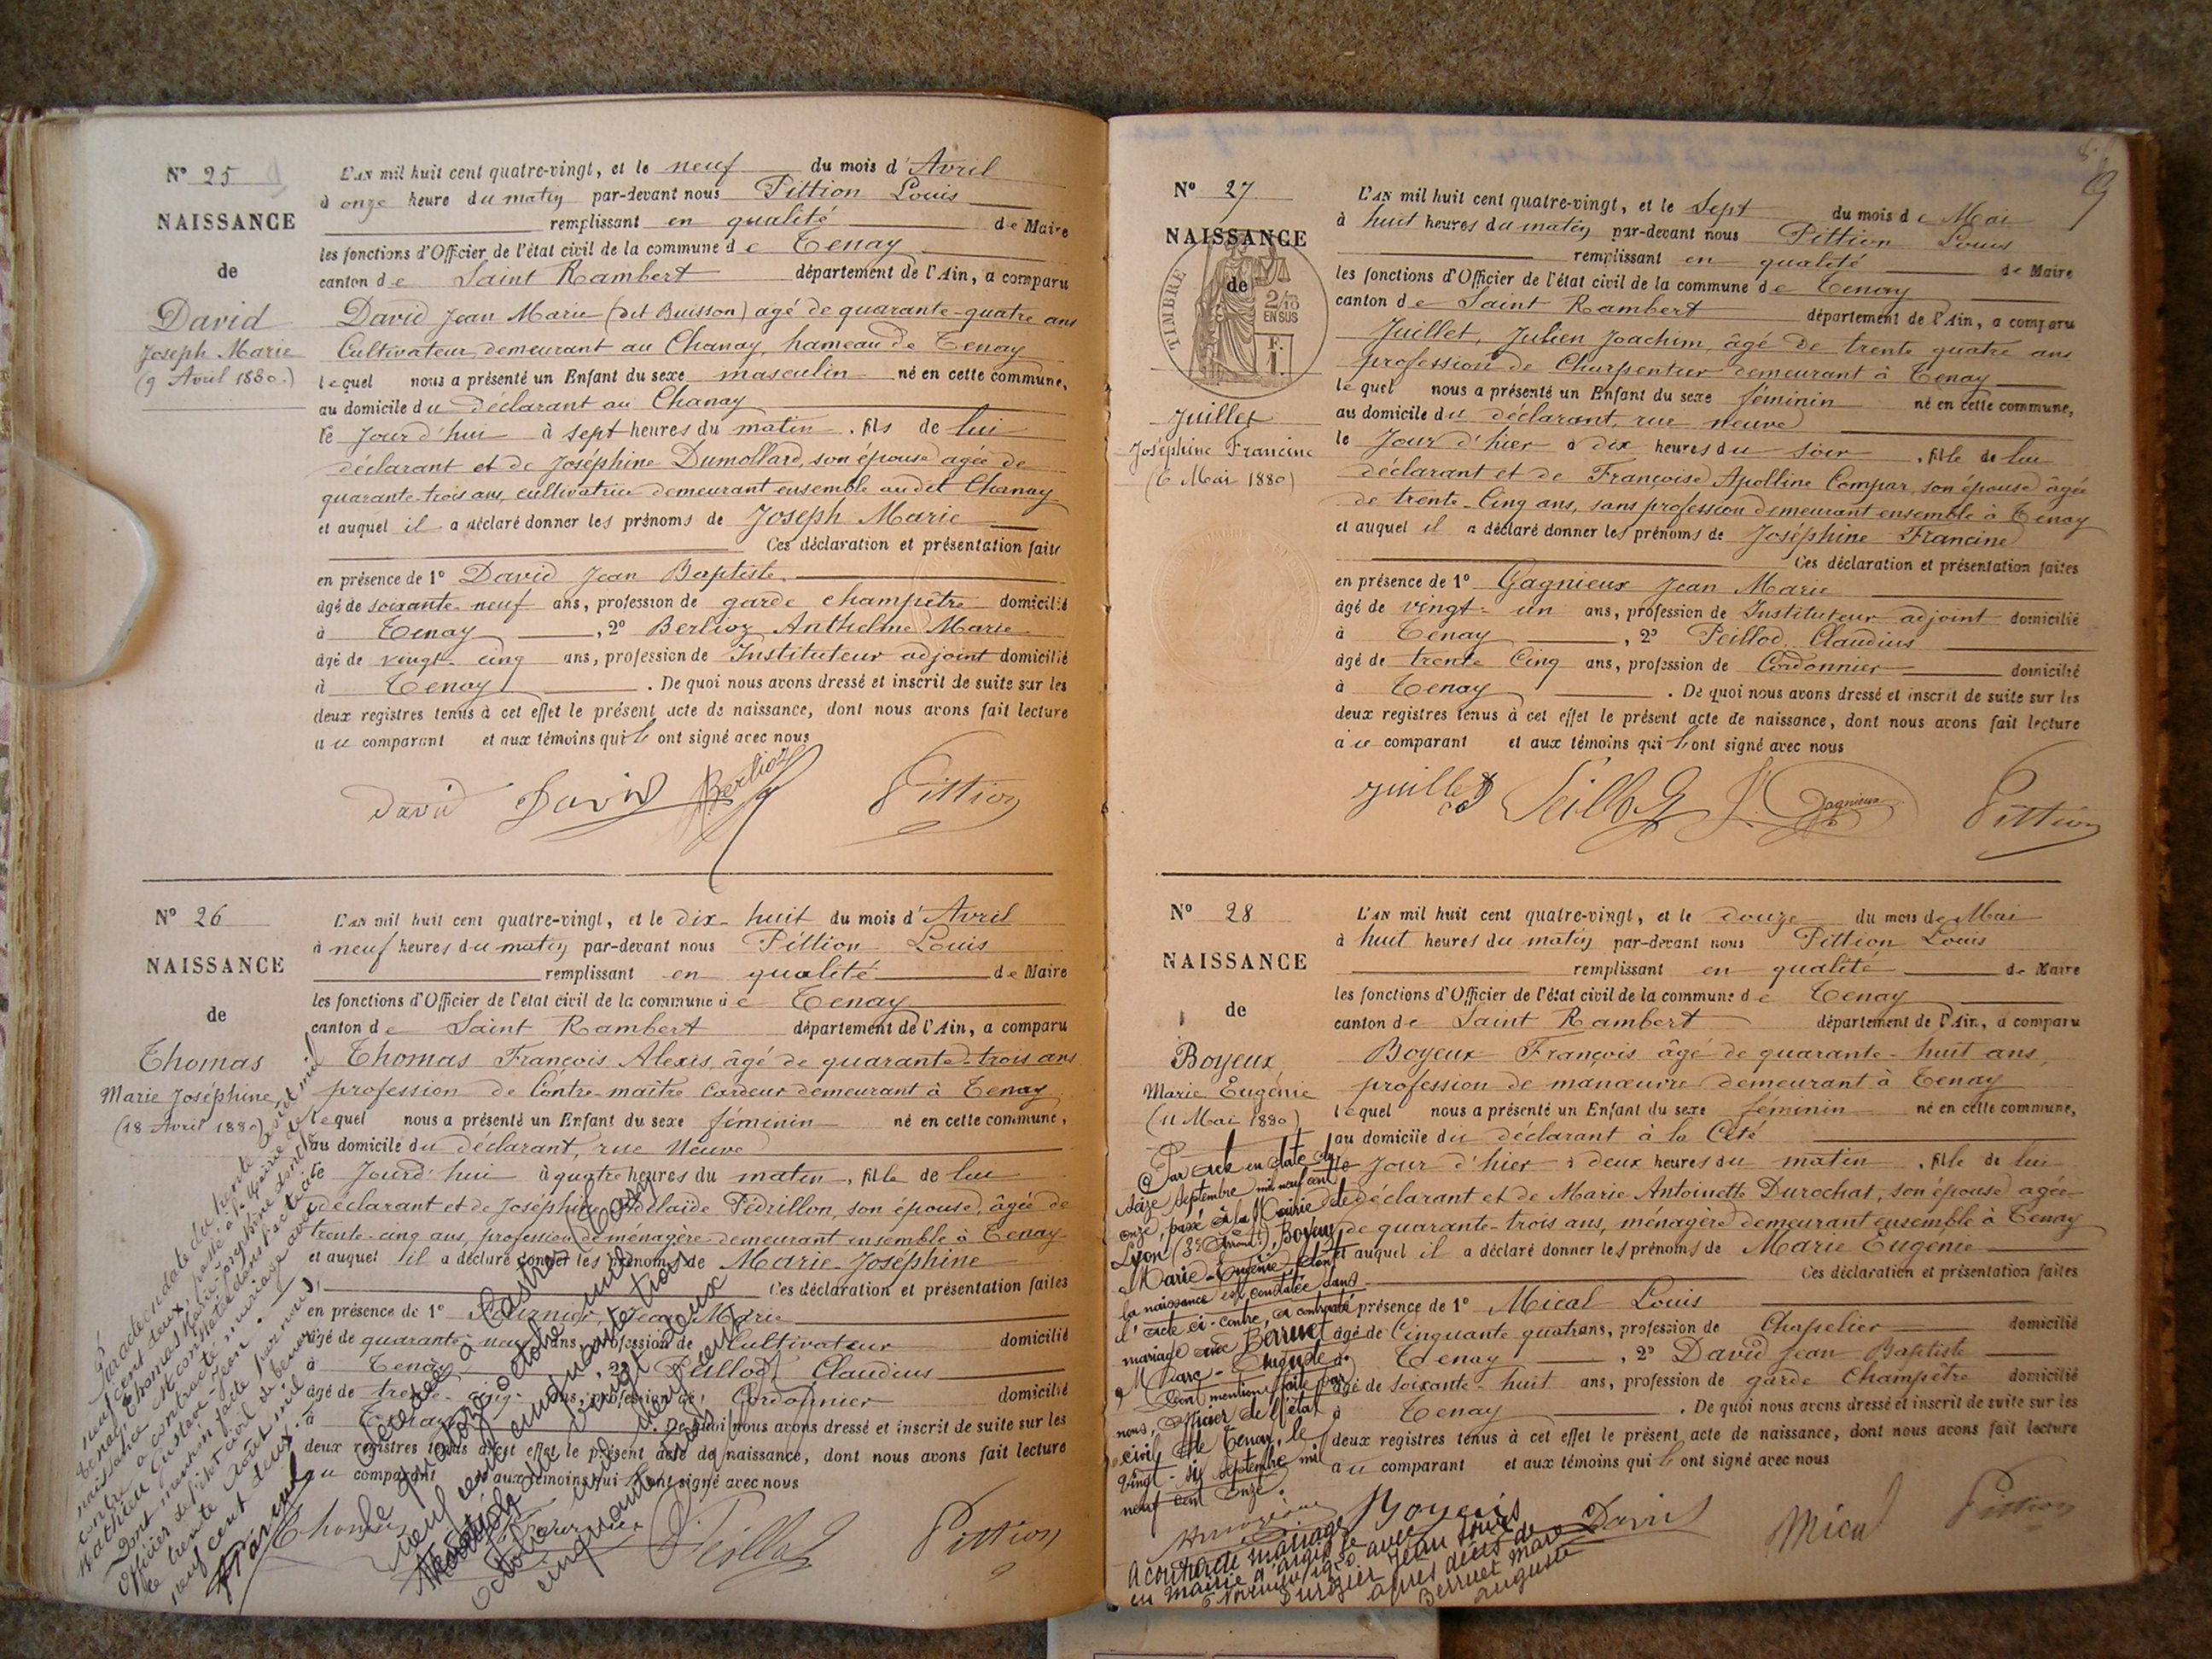 Nº 25
NAISSANCE
de
David
Joseph Marie
(9 Avril 1880.)
L'AN mil huit cent quatre-vingt, et le neuf du mois d'Avril
à onze heure du matin par-devant nous Pittion Louis
remplissant en qualité de Maire
les fonctions d'Officier de l'état civil de la commune de Tenay
canton de Saint Rambert département de l'Ain, a comparu
David Jean Marie (dit Buisson) agé de quarante-quatre ans
Cultivateur, demeurant au Chanay, hameau de Tenay
lequel nous a présenté un Enfant du sexe masculin né en cette commune,
au domicile du déclarant au Chanay
le Jour d'hui à sept heures du matin, fils de lui
déclarant et de Joséphine Dumollard, son épouse agée de
quarante-trois ans, cultivatrice demeurant ensemble au dit Chanay
et auquel il a déclaré donner les prénoms de Joseph Marie
Ces déclaration et présentation faite
en présence de 1º David Jean Baptiste
âgé de soixante-neuf ans, profession de garde champêtre domicilié
à Tenay, 2º Berlioz Anthelme Marie
âgé de vingt-cinq ans, profession de Instituteur adjoint domicilié
à Tenay. De quoi nous avons dressé et inscrit de suite sur les
deux registres tenus à cet effet le présent acte de naissance, dont nous avons fait lecture
au comparant et aux témoins qui l'ont signé avec nous
David David Berlioz Pittion
Nº 26
NAISSANCE
de
Thomas
Marie Joséphine
(18 Avril 1880)
L'AN mil huit cent quatre-vingt, et le dix-huit du mois d'Avril
à neuf heures du matin par-devant nous Pittion Louis
remplissant en qualité de Maire
les fonctions d'Officier de l'état civil de la commune de Tenay
canton de Saint Rambert département de l'Ain, a comparu
Thomas François Alexis, âgé de quarante-trois ans
profession de Contre-maître Cardeur demeurant à Tenay
lequel nous a présenté un Enfant du sexe féminin né en cette commune,
au domicile du déclarant, rue Neuve
le Jourd'hui à quatre heures du matin, fille de lui
déclarant et de Joséphine Adélaïde Pédrillon, son épouse, âgée de
trente-cinq ans, profession de ménagère demeurant ensemble à Tenay
et auquel il a déclaré donner les prénoms de Marie-Joséphine
Ces déclaration et présentation faites
en présence de 1º Jean Marie
âgé de quarante-neuf ans, profession de Cultivateur domicilié
à Tenay, 2º Peillod Claudius
âgé de trente-cinq ans, profession de Cordonnier domicilié
à Tenay. De quoi nous avons dressé et inscrit de suite sur les
deux registres tenus à cet effet le présent acte de naissance, dont nous avons fait lecture
au comparant et aux témoins qui l'ont signé avec nous
Thomas Peillod Pittion
Par acte en date du trente Août mil
neuf cent deux, passé à la Mairie de
Tenay, Thomas Marie-Joséphine dont la
naissance est constatée dans l'acte ci-
contre a contracté mariage avec
Mathieu Gustave Jean.
Dont mention faite par nous,
Officier de l'état civil de Tenay,
le trente Août mil
neuf cent deux.
Décédée à Castres (Tarn)
le quatorze octobre mil
neuf cent cinquante trois
Mention le vingt deux
octobre mil neuf cent
cinquante trois
Nº 27
NAISSANCE
de
TIMBRE
2/10
EN SUS
F.
1
Juillet
Joséphine Francine
(6 Mai 1880)
L'AN mil huit cent quatre-vingt, et le Sept du mois de Mai
à huit heures du matin par-devant nous Pittion Louis
remplissant en qualité de Maire
les fonctions d'Officier de l'état civil de la commune de Tenay
canton de Saint Rambert département de l'Ain, a comparu
Juillet, Julien Joachim, âgé de trente quatre ans
profession de Charpentier demeurant à Tenay
lequel nous a présenté un Enfant du sexe féminin né en cette commune,
au domicile du déclarant, rue neuve
le Jour d'hier à dix heures du soir, fille de lui
déclarant et de Françoise Apolline Compar, son épouse âgée
de trente-Cinq ans, sans profession demeurant ensemble à Tenay
et auquel il a déclaré donner les prénoms de Joséphine Francine
Ces déclaration et présentation faites
en présence de 1º Gagnieux Jean Marie
âgé de vingt-un ans, profession de Instituteur adjoint domicilié
à Tenay, 2º Peillod Claudius
âgé de trente Cinq ans, profession de Cordonnier domicilié
à Tenay. De quoi nous avons dressé et inscrit de suite sur les
deux registres tenus à cet effet le présent acte de naissance, dont nous avons fait lecture
au comparant et aux témoins qui l'ont signé avec nous
Juillet Peillod Gagnieux Pittion
Nº 28
NAISSANCE
de
Boyeux
Marie Eugénie
(11 Mai 1880)
L'AN mil huit cent quatre-vingt, et le douze du mois de Mai
à huit heures du matin par-devant nous Pittion Louis
remplissant en qualité de Maire
les fonctions d'Officier de l'état civil de la commune de Tenay
canton de Saint Rambert département de l'Ain, a comparu
Boyeux François âgé de quarante-huit ans,
profession de manœuvre demeurant à Tenay
lequel nous a présenté un Enfant du sexe féminin né en cette commune,
au domicile du déclarant à la Cité
le Jour d'hier à deux heures du matin, fille de lui
déclarant et de Marie Antoinette Durochat, son épouse agée
de quarante-trois ans, ménagère demeurant ensemble à Tenay
et auquel il a déclaré donner les prénoms de Marie Eugénie
Ces déclaration et présentation faites
en présence de 1º Mical Louis
âgé de Cinquante quatre ans, profession de Chapelier domicilié
à Tenay, 2º David Jean Baptiste
âgé de soixante-huit ans, profession de garde Champêtre domicilié
à Tenay. De quoi nous avons dressé et inscrit de suite sur les
deux registres tenus à cet effet le présent acte de naissance, dont nous avons fait lecture
au comparant et aux témoins qui l'ont signé avec nous
Boyeux David Mical Pittion
Par acte en date du
seize septembre mil neuf cent
onze, passé à la Mairie de
Lyon (3e Arrondt), Boyeux
Marie-Eugénie, dont
la naissance est constatée dans
l'acte ci-contre, a contracté
mariage avec Berruet
Marc-Auguste.
Dont mention faite par
nous, Officier de l'état
civil de Tenay, le
vingt-six septembre mil
neuf cent onze.
A contracté mariage
en mairie d'
novembre 1920 avec
Jean Louis
après décès de
Berruet Marc
Auguste